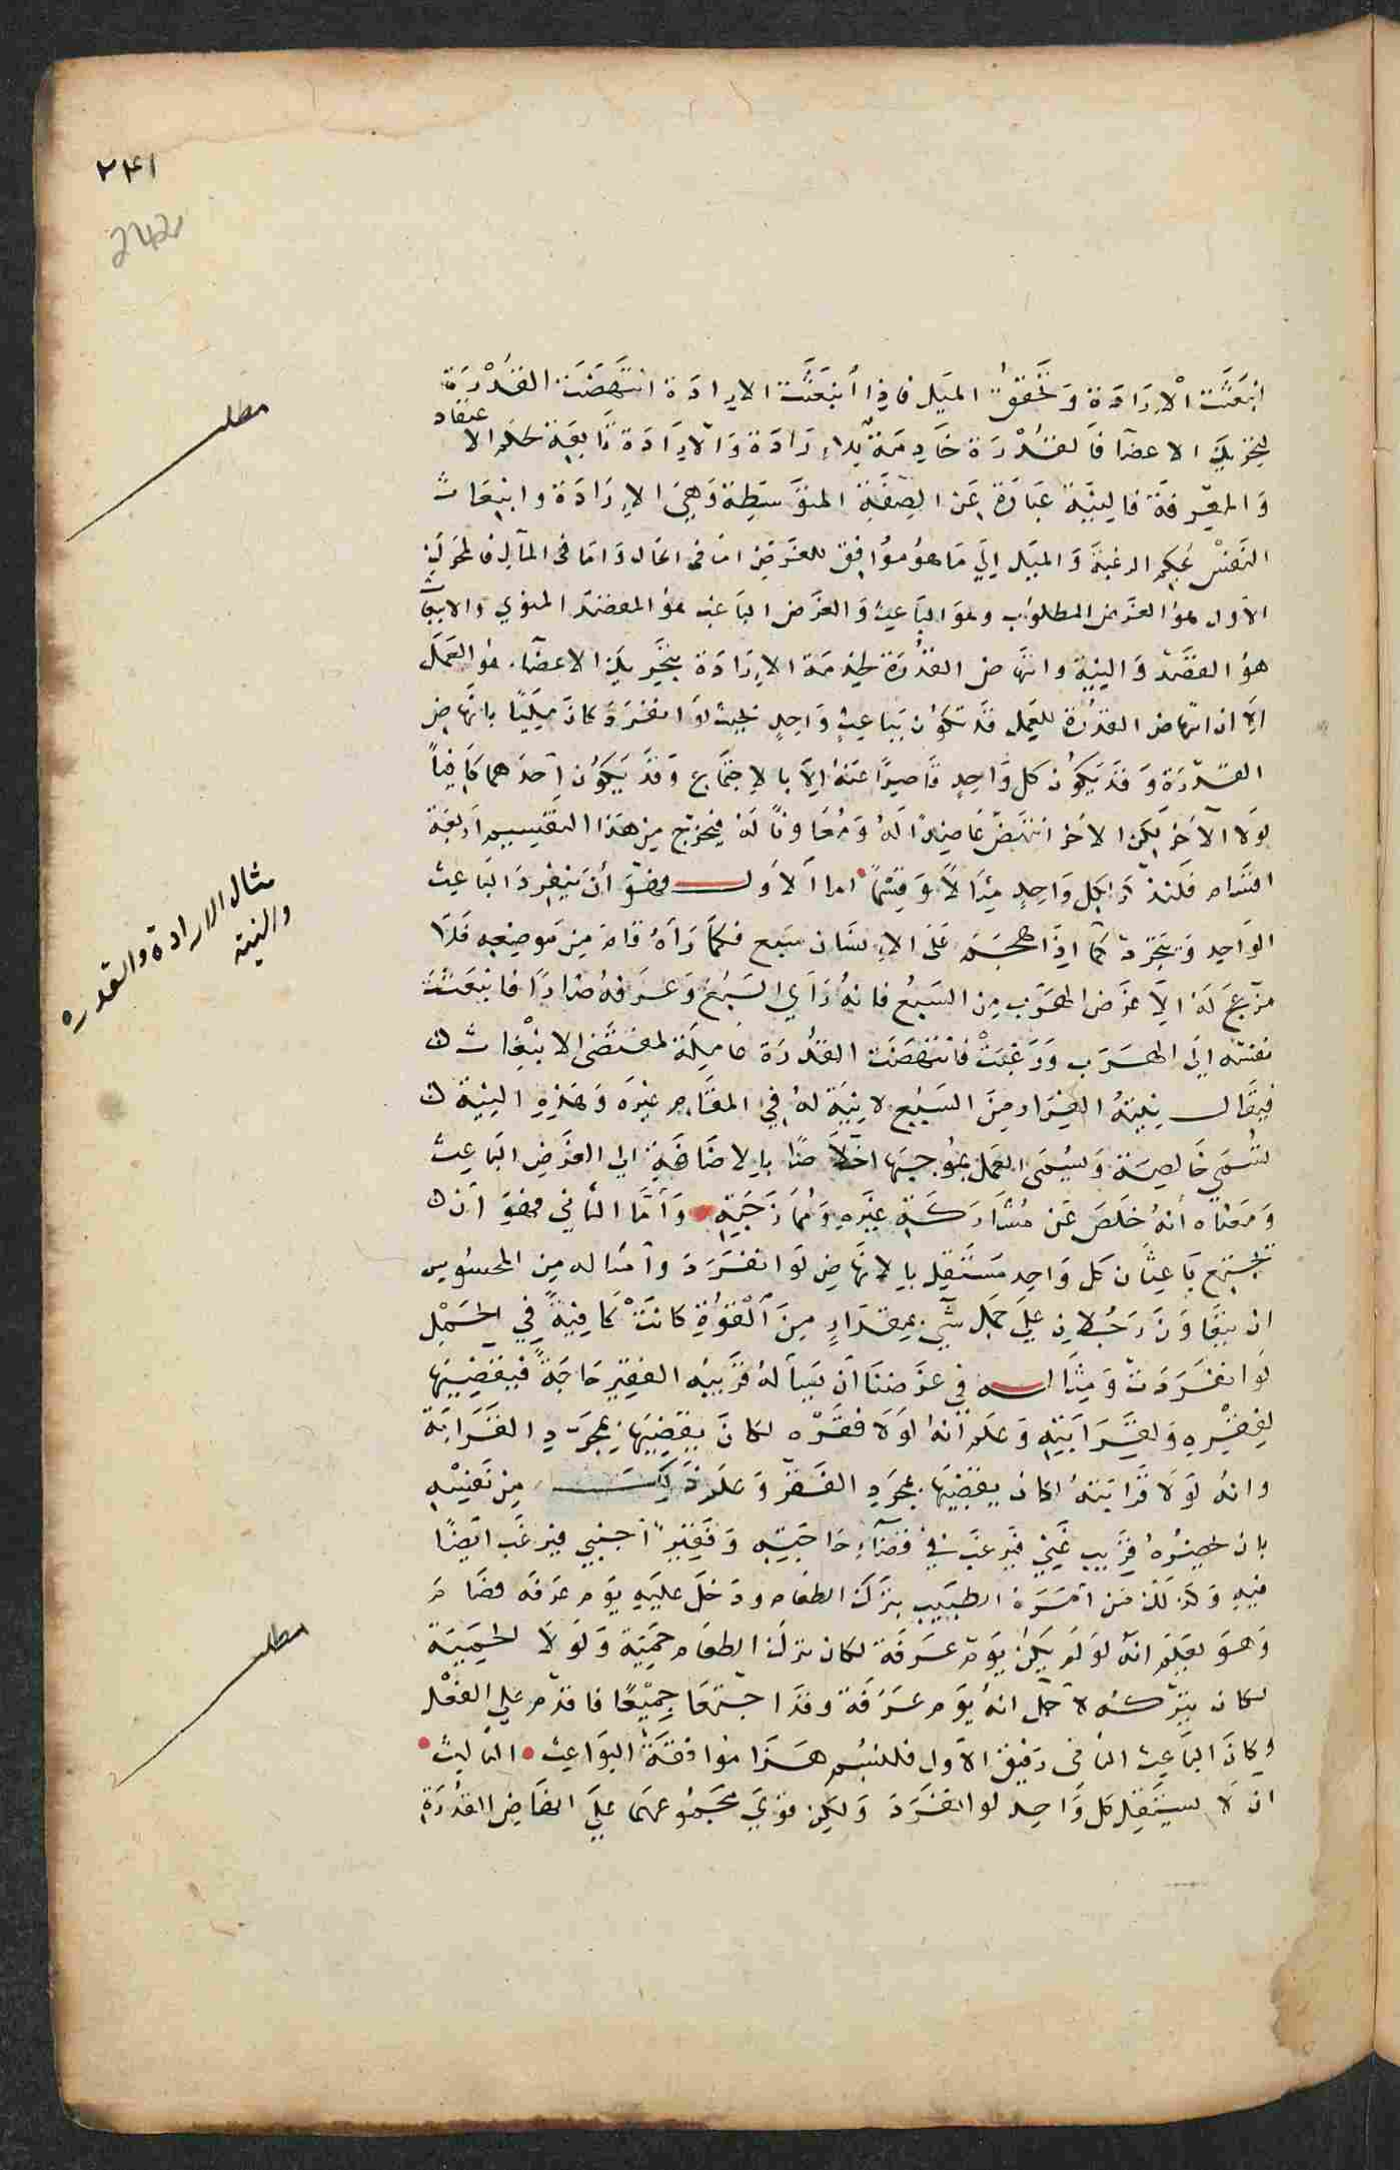 ٢٤١
242
انبعثت الإرادة وتحقق الميل فاذا انبعثت الإرادة انتهضت القدرة
لتحريك الاعضا فالقدرة خادمة للإرادة والإرادة تابعة لحكم الاعتقاد
والمعرفة فالنية عبارة عن الصفة المتوسطة وهي الإرادة وانبعاث
النفس بحكم الرغبة والميل إلى ما هو موافق للغرض اما في الحال واما في المآل فالمحرك
الاول هو الغرض المطلوب وهو الباعث والغرض الباعث هو المقصد المنوي والانبعاث
هو القصد والنية وانتهاض القدرة لخدمة الإرادة بتحريك الاعضاء هو العمل
الا ان انتهاض القدرة للعمل قد تكون بباعث واحد بحيث لو انفرد كان مليا بانهاض
القدرة وقد يكون كل واحد قاصرا عنه إلا بالاجتماع وقد يكون احدهما كافيا
لولا الآخر لكن الاخر انتهض عاضدا له ومعاونا له فيخرج من هذا التقسيم اربعة
اقسام فلنذكر لكل واحد مثالا وقسما اما الاول فهو أن ينفرد الباعث
الواحد ويتجرد كما اذا هجم على الإنسان سبع فكما رآه قام من موضعه فلا
مزعج له إلا غرض الهرب من السبع فانه رأى السبع وعرفه ضارا فانبعثت
نفسه إلى الهرب ورغبت فانتهضت القدرة عاملة لمقتضى الانبعاث
فيقال نيته الفرار من السبع لا نية له في القيام غيره وهذه النية
تسمى خالصة ويسمى العمل بموجبها اخلاصا بالإضافة الى الغرض الباعث
ومعناه أنه خلص عن مشاركة غيره وممازجته وأما الثاني فهو أن
تجتمع باعثان كل واحد مستقل بالإنهاض لو انفرد وامثاله من المحسوس
ان يتعاون رجلان على حمل شيء بمقدار من القوة كانت كافية في الحمل
لو انفردت ومثاله في غرضنا أن يسأله قريبه الفقير حاجة فيقضيها
لفقره ولقرابته وعلم أنه لولا فقره لكان يقضيها بمجرد القرابة
وانه لولا قرابته لكان يقضيها بمجرد الفقر وعلم ذلك من نفسه
بان يحضره قريب غني فيرغب في قضاء حاجته وفقير أجنبي فيرغب ايضا
فيه وكذلك من امره الطبيب بترك الطعام ودخل عليه يوم عرفة فصام
وهو يعلم انه لو لم يكن يوم عرفة لكان ترك الطعام حمية ولولا الحمية
لكان يتركه لاجل انه يوم عرفة وقد اجتمعا جميعا فاقدم على الفعل
وكان الباعث الثاني رفيق الاول فلنسم هذا موافقة البواعث الثالث
ان لا يستقل كل واحد لو انفرد ولكن قوي مجموعهما على انهاض القدرة
مطلب
مثال الارادة والقدره
والنية
مطلب